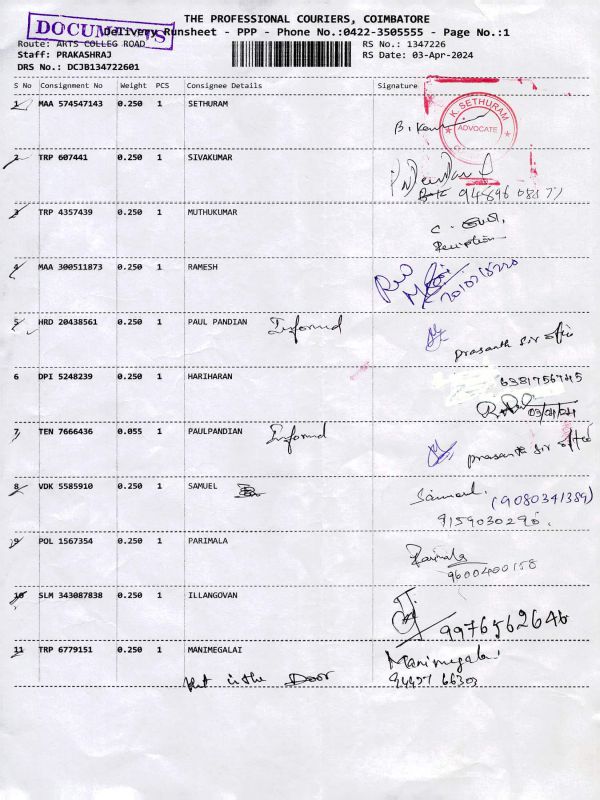 THE PROFESSIONAL COURIERS, COIMBATORE
DOCUMENTS
Delivery Runsheet - PPP - Phone No.:0422-3505555 - Page No.:1
Route: ARTS COLLEG ROAD
RS No.: 1347226
Staff: PRAKASHRAJ
RS Date: 03-Apr-2024
DRS No.: DCJB134722601
S No Consignment No Weight PCS Consignee Details Signature
1 MAA 574547143 0.250 1 SETHURAM
K. SETHURAM
ADVOCATE
2 TRP 607441 0.250 1 SIVAKUMAR
3 TRP 4357439 0.250 1 MUTHUKUMAR
Reception
4 MAA 300511873 0.250 1 RAMESH
5 HRD 20438561 0.250 1 PAUL PANDIAN Informed
prasanth sir office
6 DPI 5248239 0.250 1 HARIHARAN
6381756745
03/04/24
7 TEN 7666436 0.055 1 PAULPANDIAN Informed
prasanth sir office
8 VDK 5585910 0.250 1 SAMUEL
Samuel. (9080341389)
9159030296.
9 POL 1567354 0.250 1 PARIMALA
Parimala
9600400158
10 SLM 343087838 0.250 1 ILLANGOVAN
9976562646
11 TRP 6779151 0.250 1 MANIMEGALAI
Manimegalai
put in the Door